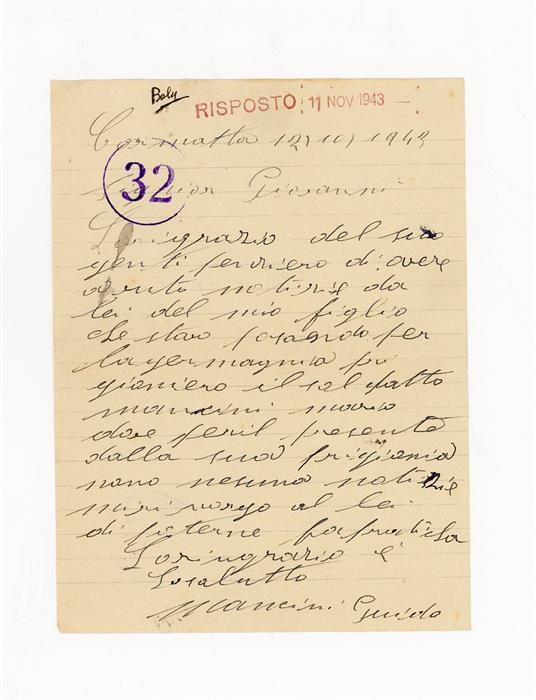 Boly
RISPOSTO 11 NOV. 1943
Cormatta 12/10/1943
32
Signor Giovanni
Loringrazio del suo
gentil penziero di avere
avuto notizie da
lei del mio figlio
che stavo pasando per
lagermagnia pri
gioniero il soldatto
mancini mario
dove peril presente
dalla sua prigionia
nono nesuna notizie
mirivorgo al lei
di poterne
Loringrazio é
Losalutto
Mancini Guido